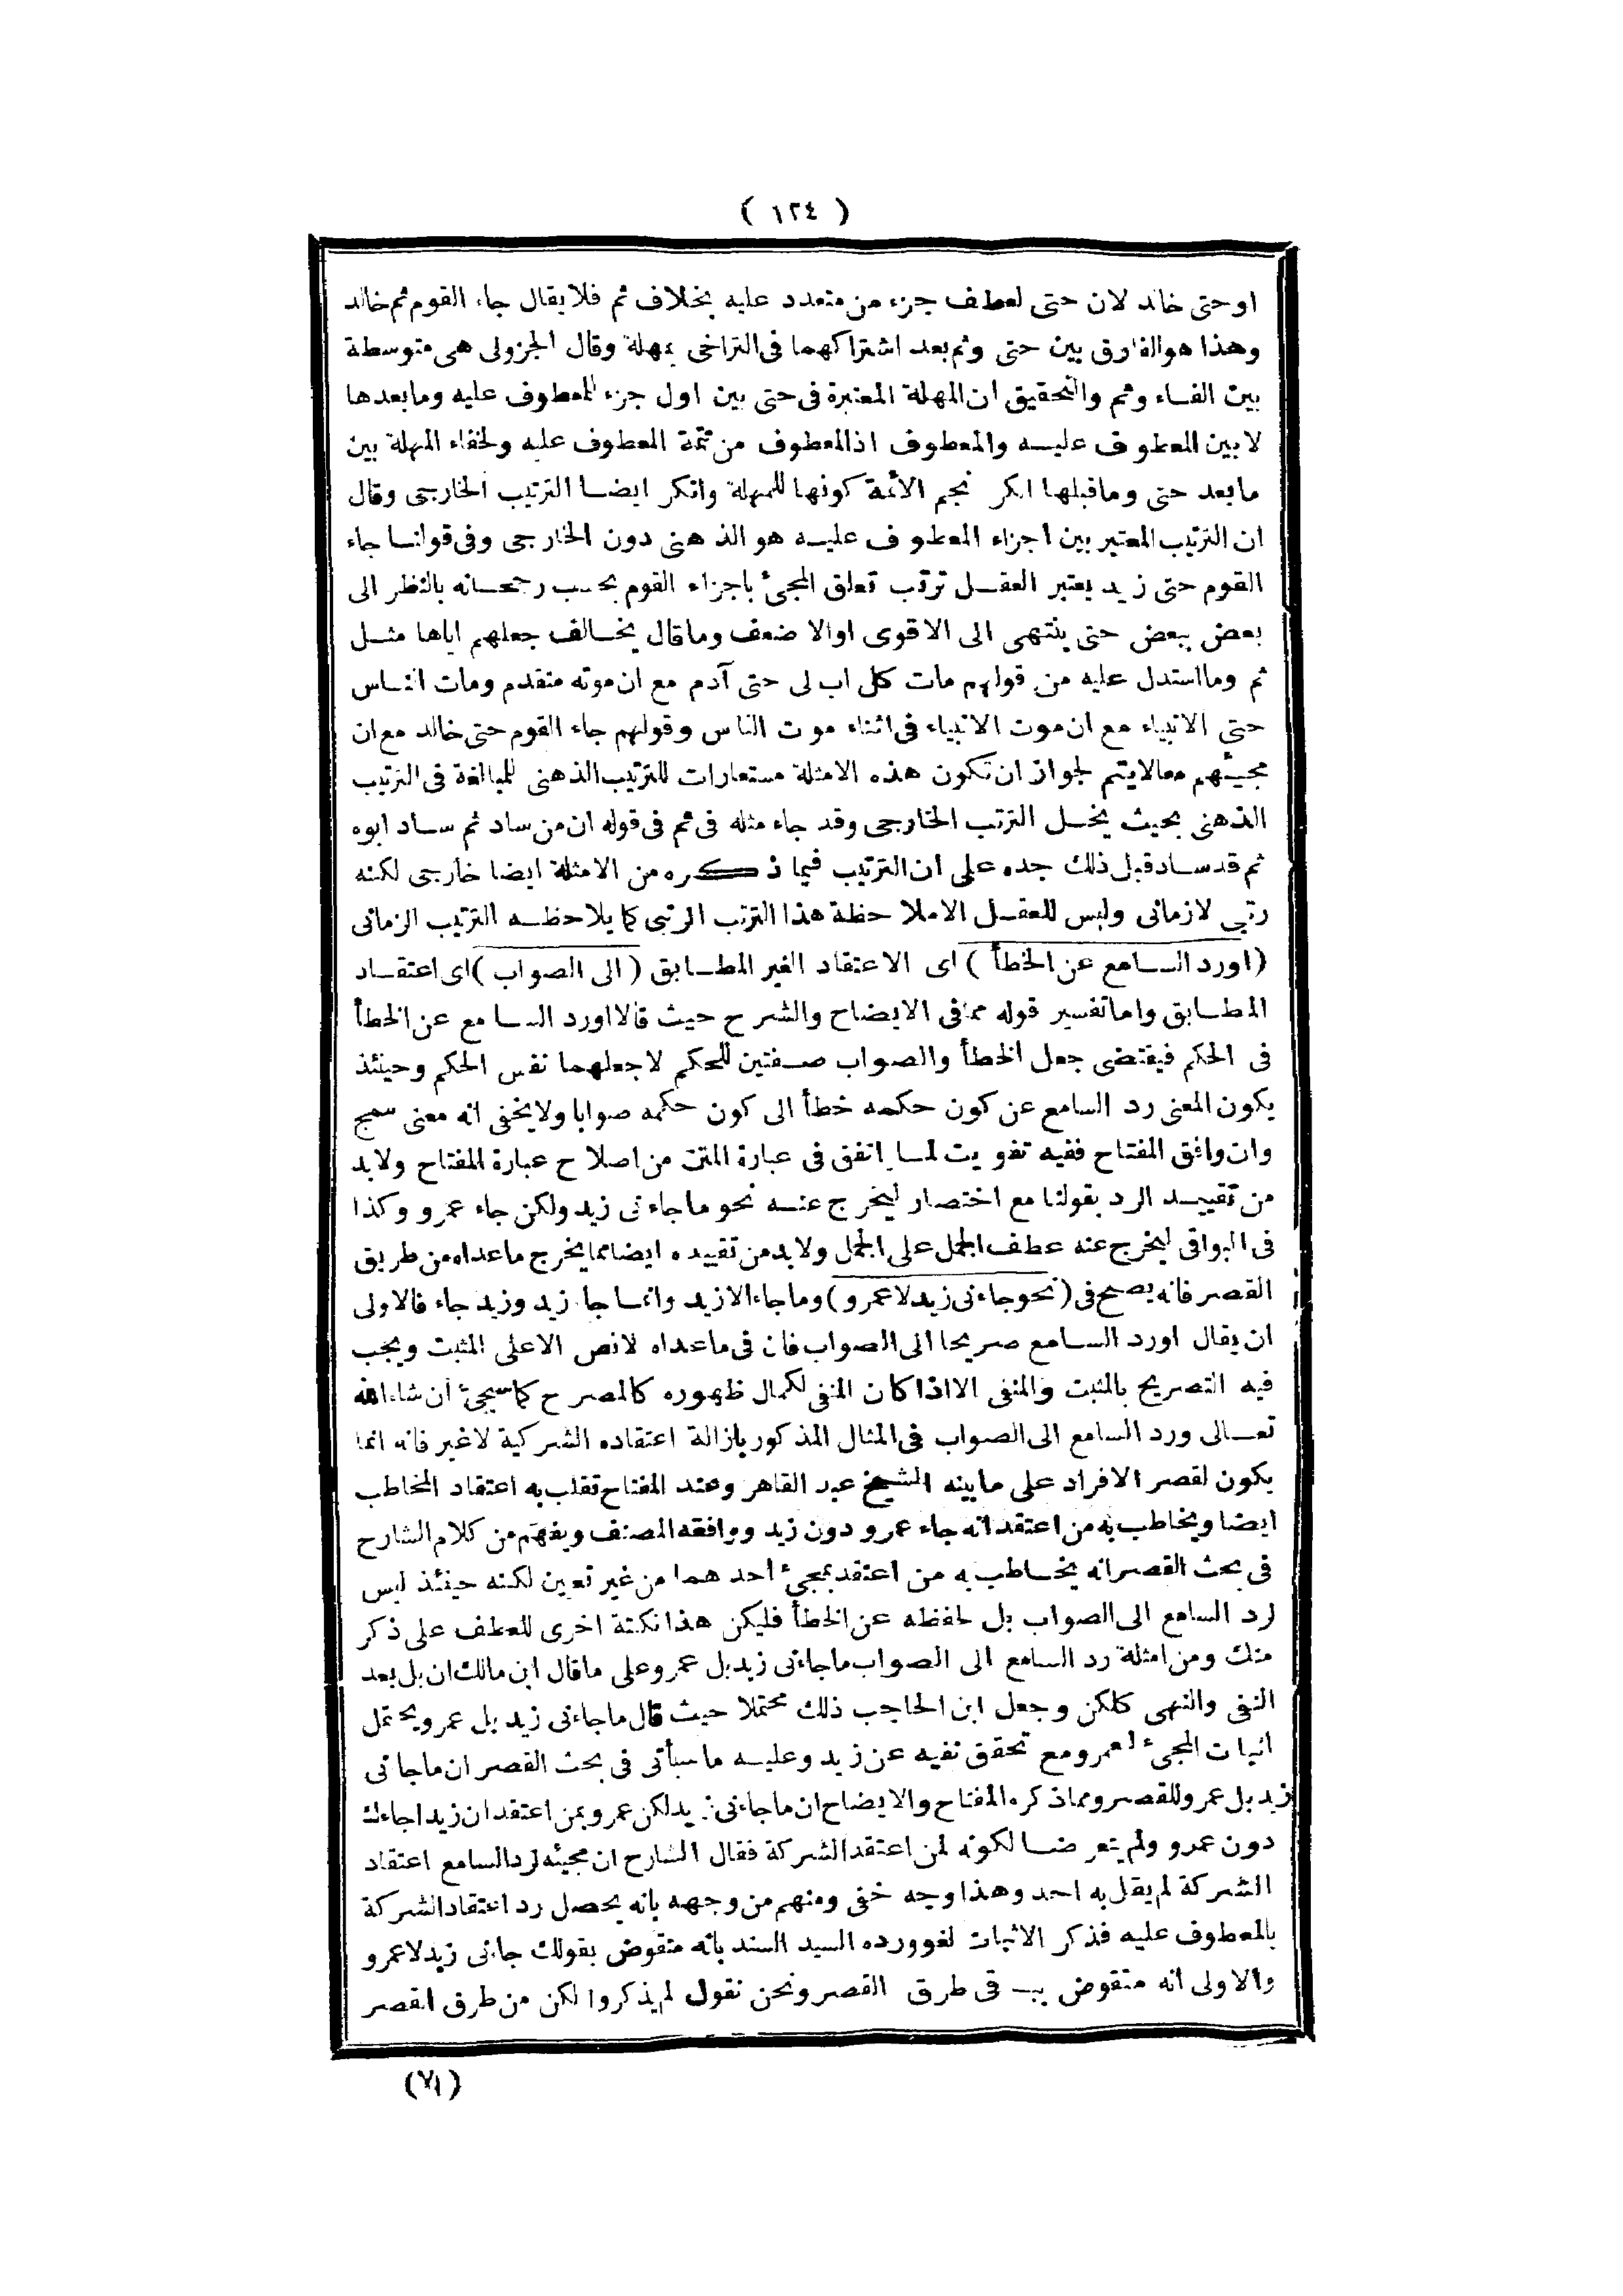 ( ١٢٤ )
او حتى خالد لان حتى لعطف جزء من متعدد عليه بخلاف ثم فلا يقال جاء القوم ثم خالد
وهذا هو الفارق بين حتى وثم بعد اشتراكهما فى التراخى بمهلة وقال الجزولى هى متوسطة
بين الفاء وثم والتحقيق ان المهلة المعتبرة فى حتى بين اول جزء للمعطوف عليه وما بعدها
لا بين المعطوف عليه والمعطوف اذ المعطوف من تتمة المعطوف عليه ولخفاء المهلة بين
ما بعد حتى وما قبلها انكر نجم الائمة كونها للمهلة وانكر ايضا الترتيب الخارجى وقال
ان الترتيب المعتبر بين اجزاء المعطوف عليه هو الذهنى دون الخارجى وفى قولنا جاء
القوم حتى زيد يعتبر العقل ترتب تعلق المجئ باجزاء القوم بحسب رجحانه بالنظر الى
بعض ببعض حتى ينتهى الى الاقوى او الاضعف وما قال يخالف جعلهم اياها مثل
ثم وما استدل عليه من قولهم مات كل اب لى حتى آدم مع ان موته متقدم ومات الناس
حتى الانبياء مع ان موت الانبياء فى اثناء موت الناس وقولهم جاء القوم حتى خالد مع ان
مجيئهم معا لا يتم لجواز ان تكون هذه الامثلة مستعارات للترتيب الذهنى للمبالغة فى الترتيب
الذهنى بحيث يخل الترتب الخارجى وقد جاء مثله فى ثم فى قوله ان من ساد ثم ساد ابوه
ثم قد ساد قبل ذلك جده على ان الترتيب فيما ذكره من الامثلة ايضا خارجى لكنه
رتبى لا زمانى وليس للعقل الا ملاحظة هذا الترتب الرتبى كما يلاحظه الترتيب الزمانى
(او رد السامع عن الخطأ ) اى الاعتقاد الغير المطابق (الى الصواب ) اى اعتقاد
المطابق واما تفسير قوله مما فى الايضاح والشرح حيث قالا او رد السامع عن الخطأ
فى الحكم فيقتضى جعل الخطأ والصواب صفتين للحكم لا جعلهما نفس الحكم وحينئذ
يكون المعنى رد السامع عن كون حكمه خطأ الى كون حكمه صوابا ولا يخفى انه معنى سمج
وان وافق المفتاح ففيه تفويت لما اتفق فى عبارة المتن من اصلاح عبارة المفتاح ولا بد
من تقييد الرد بقولنا مع اختصار ليخرج عنه نحو ما جاءنى زيد ولكن جاء عمرو وكذا
فى البواقى ليخرج عنه عطف الجمل على الجمل ولا بد من تقييده ايضا مما يخرج ما عداه من طريق
القصر فانه يصح فى (نحو جاءنى زيد لا عمرو ) وما جاء الا زيد وانما جاء زيد وزيد جاء فالاولى
ان يقال او رد السامع صريحا الى الصواب فان فى ما عداه لا نص الا على المثبت ويجب
فيه التصريح بالمثبت والمنفى الا اذا كان المنفى لكمال ظهوره كالمصرح كما سيجئ ان شاء الله
تعالى ورد السامع الى الصواب فى المثال المذكور بازالة اعتقاده الشركية لا غير فانه انما
يكون لقصر الافراد على ما بينه الشيخ عبد القاهر وعند المفتاح تقلب به اعتقاد المخاطب
ايضا ويخاطب به من اعتقد انه جاء عمرو دون زيد ووافقه المصنف ويفهم من كلام الشارح
فى بحث القصر انه يخاطب به من اعتقد بمجئ احدهما من غير تعين لكنه حينئذ ليس
لرد السامع الى الصواب بل لحفظه عن الخطأ فليكن هذا نكتة اخرى للعطف على ذكر
منك ومن امثلة رد السامع الى الصواب ما جاءنى زيد بل عمرو على ما قال ابن مالك ان بل بعد
النفى والنهى كلكن وجعل ابن الحاجب ذلك محتملا حيث قال ما جاءنى زيد بل عمرو يحتمل
اثبات المجئ لعمرو مع تحقق نفيه عن زيد وعليه ما سيأتى فى بحث القصر ان ما جاءنى
زيد بل عمرو للقصر ومما ذكره المفتاح والايضاح ان ما جاءنى زيد لكن عمرو بمن اعتقد ان زيدا جاءك
دون عمرو ولم يتعرضا لكونه لمن اعتقد الشركة فقال الشارح ان مجيئه لرد السامع اعتقاد
الشركة لم يقل به احد وهذا وجه خفى ومنهم من وجهه بانه يحصل رد اعتقاد الشركة
بالمعطوف عليه فذكر الاثبات لغو ورده السيد السند بانه منقوض بقولك جاءنى زيد لا عمرو
والاولى انه منقوض فى طرق القصر ونحن نقول لم يذكروا لكن من طرق القصر